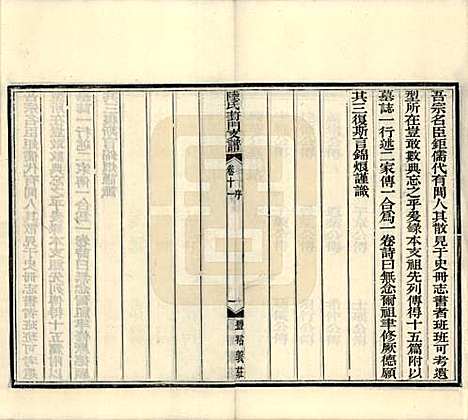 吾宗名臣鉅儒代有聞人其散見于史冊志書者班班可考遺
型所在豈敢數典忘之乎爰錄本支祖先列傳得十五篇附以
墓誌一行述二家傳一合為一卷詩曰無忝爾祖聿修厥德願
其三復斯言錦烺謹識
陸氏葑門支譜
卷十一
序
一
豐裕義莊